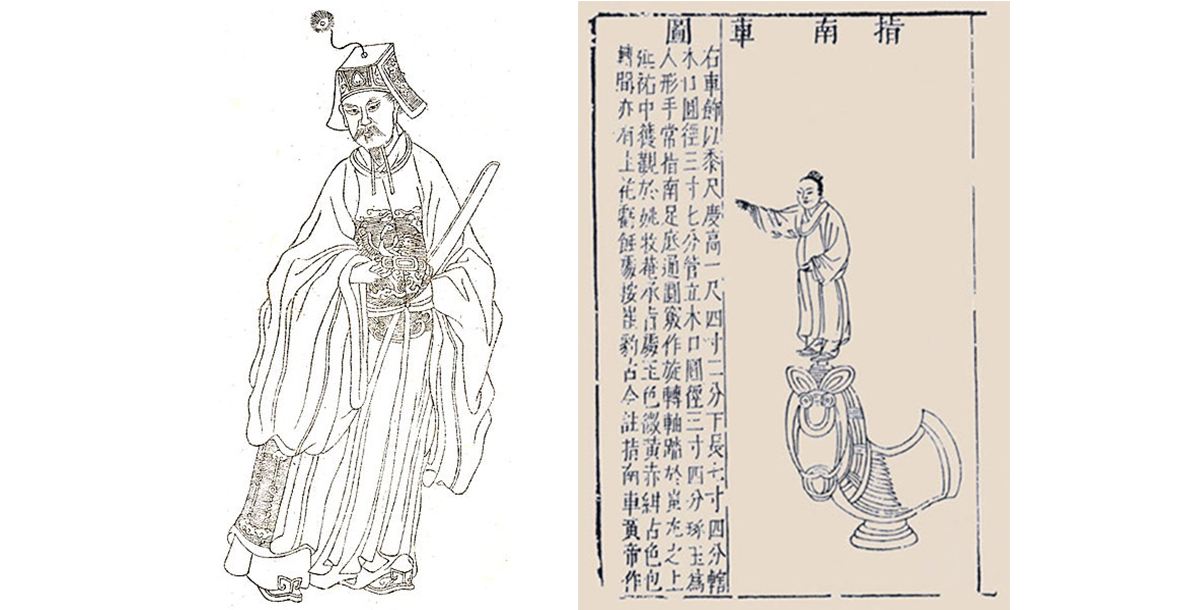 指南車圖
右車飾以黍尺度高一尺四寸二分下長七寸四分轄
木口圓徑三寸七分管立木口圓徑三寸四分琢玉為
人形手常指南足底通圓竅作旋轉軸踏於蚩尤之上
延祐中獲觀於姚牧菴承旨處玉色微黃赤紺古色包
轉間亦有土花蝕處按崔豹古今註指南車黃帝作